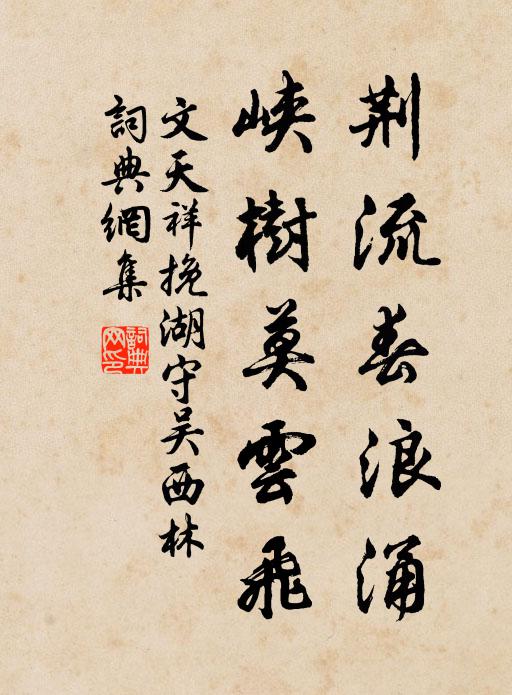 荆流春浪涌
峡樹莫雲飛
文天祥挽湖守吴西林
詞典網集
詞典網印